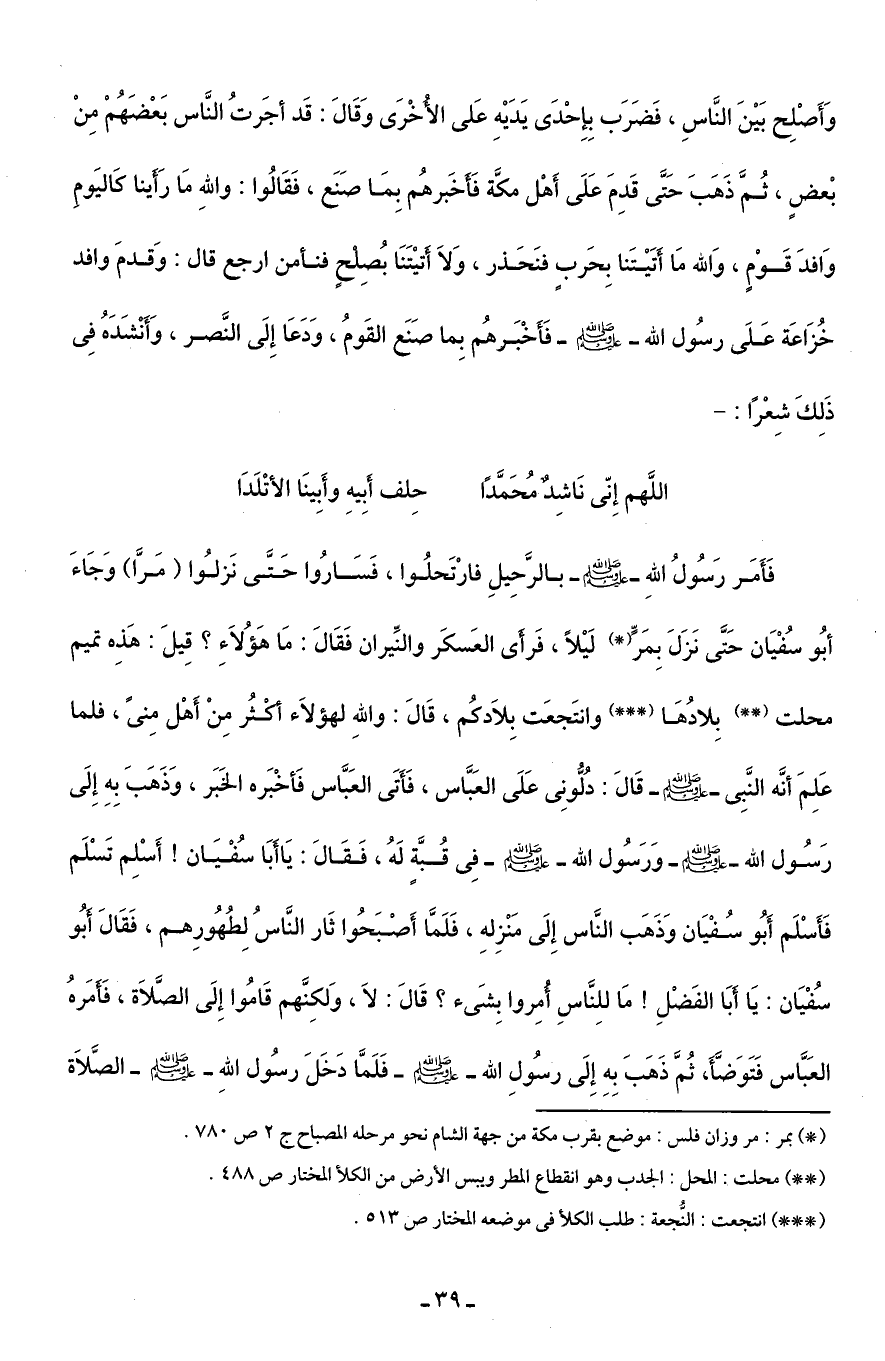 وَأَصْلِح بَيْنَ النَّاسِ ، فَضَرَب بِإِحْدَى يَدَيْهِ عَلى الأُخْرَى وَقَالَ : قَد أجَرتُ النَّاس بَعْضَهُمْ مِنْ
بْعضٍ ، ثُمَّ ذَهَبَ حَتَّى قدِمَ عَلَى أهْل مكَّة فَأخَبرهُم بِمَا صَنَع ، فَقَالُوا : واللهِ مَا رَأَينا كَاليَومِ
وَافدَ قَوْمٍ ، وَالله مَا أَتَيْتَنا بِحَربٍ فنَحَذر ، ولاَ أتيْتَنَا بُصلْحٍ فنأمن ارجع قال : وَقدمَ وافد
خُزَاعَة عَلَى رسوُل الله ـ ﷺ ـ فَأَخْبَرهُم بِما صنَع القَومُ ، وَدَعَا إِلَى النَّصر ، وَأَنْشَدَهُ فِى
ذَلِكَ شِعْرًا : –
اللَّهم إِنِّى نَاشِدٌ مُحَمَّدًا حِلف أَبِيهِ وأَبِينَا الأتْلَدَا
فَأَمَر رَسُولُ اللهِ ـ ﷺ ـ بالرَّحِيلِ فارْتَحلُوا ، فَسَارُوا حَتَّى نَزلُوا ( مَرَّا ) وَجَاءَ
أبُو سفُيَان حَتَّى نَزَلَ بِمَرٍّ (*) لَيْلاً ، فَرأى العَسكَر والنِّيران فَقَالَ : مَا هَؤُلاَءِ ؟ قِيلَ : هَذه تميم
محلت (**) بِلادُهَا (***) وانتجعَت بِلاَدكُم ، قَالَ : واللهِ لهؤلاَء أكْثُر مِنْ أَهْل مِنىً ، فلما
عَلِمَ أنَّه النَّبى ـ ﷺ ـ قَالَ : دُلُّونِى عَلَى العَبَّاس ، فَأَتَى العَبَّاس فَأخْبَره الخَبَر ، وَذَهَبَ بِهِ إِلَى
رَسُول الله ـ ﷺ ـ وَرَسُول الله ـ ﷺ ـ فِى قُبَّةٍ لَهُ ، فَقَالَ : يَاأبَا سفْيَان ! أَسْلِم تَسْلَم
فَأَسْلَم أبُو سُفْيَان وَذَهَب النَّاس إِلَى مَنْزِله ، فَلَمَّا أصْبَحُوا ثَار النَّاسُ لِطُهُورِهم ، فَقَالَ أبُو
سفُيَان : يَا أبَا الفَضْلِ ! مَا للِنَّاسِ أُمِروا بِشَىء ؟ قَالَ : لاَ ، وَلكنَّهم قَامُوا إِلَى الصَّلاَة ، فَأَمَرهُ
العَبَّاس فَتَوَضَّأَ، ثُمَّ ذَهَبَ بِهِ إِلَى رسوُلِ الله ـ ﷺ ـ فَلَمَّا دَخَلَ رسوُل اللهِ ـ ﷺ ـ الصَّلاَة
(*) بمر : مر وزان فلس : موضع بقرب مكة من جهة الشام نحو مرحله المصباح ج ٢ ص ٧٨٠ .
(**) محلت : المحل : الجدب وهو انقطاع المطر ويبس الأرض من الكلأ المختار ص ٤٨٨ .
(***) انتجعت : النُّجعة : طلب الكلأ فى موضعه المختار ص ٥١٣ .
ـ ٣٩ ـ